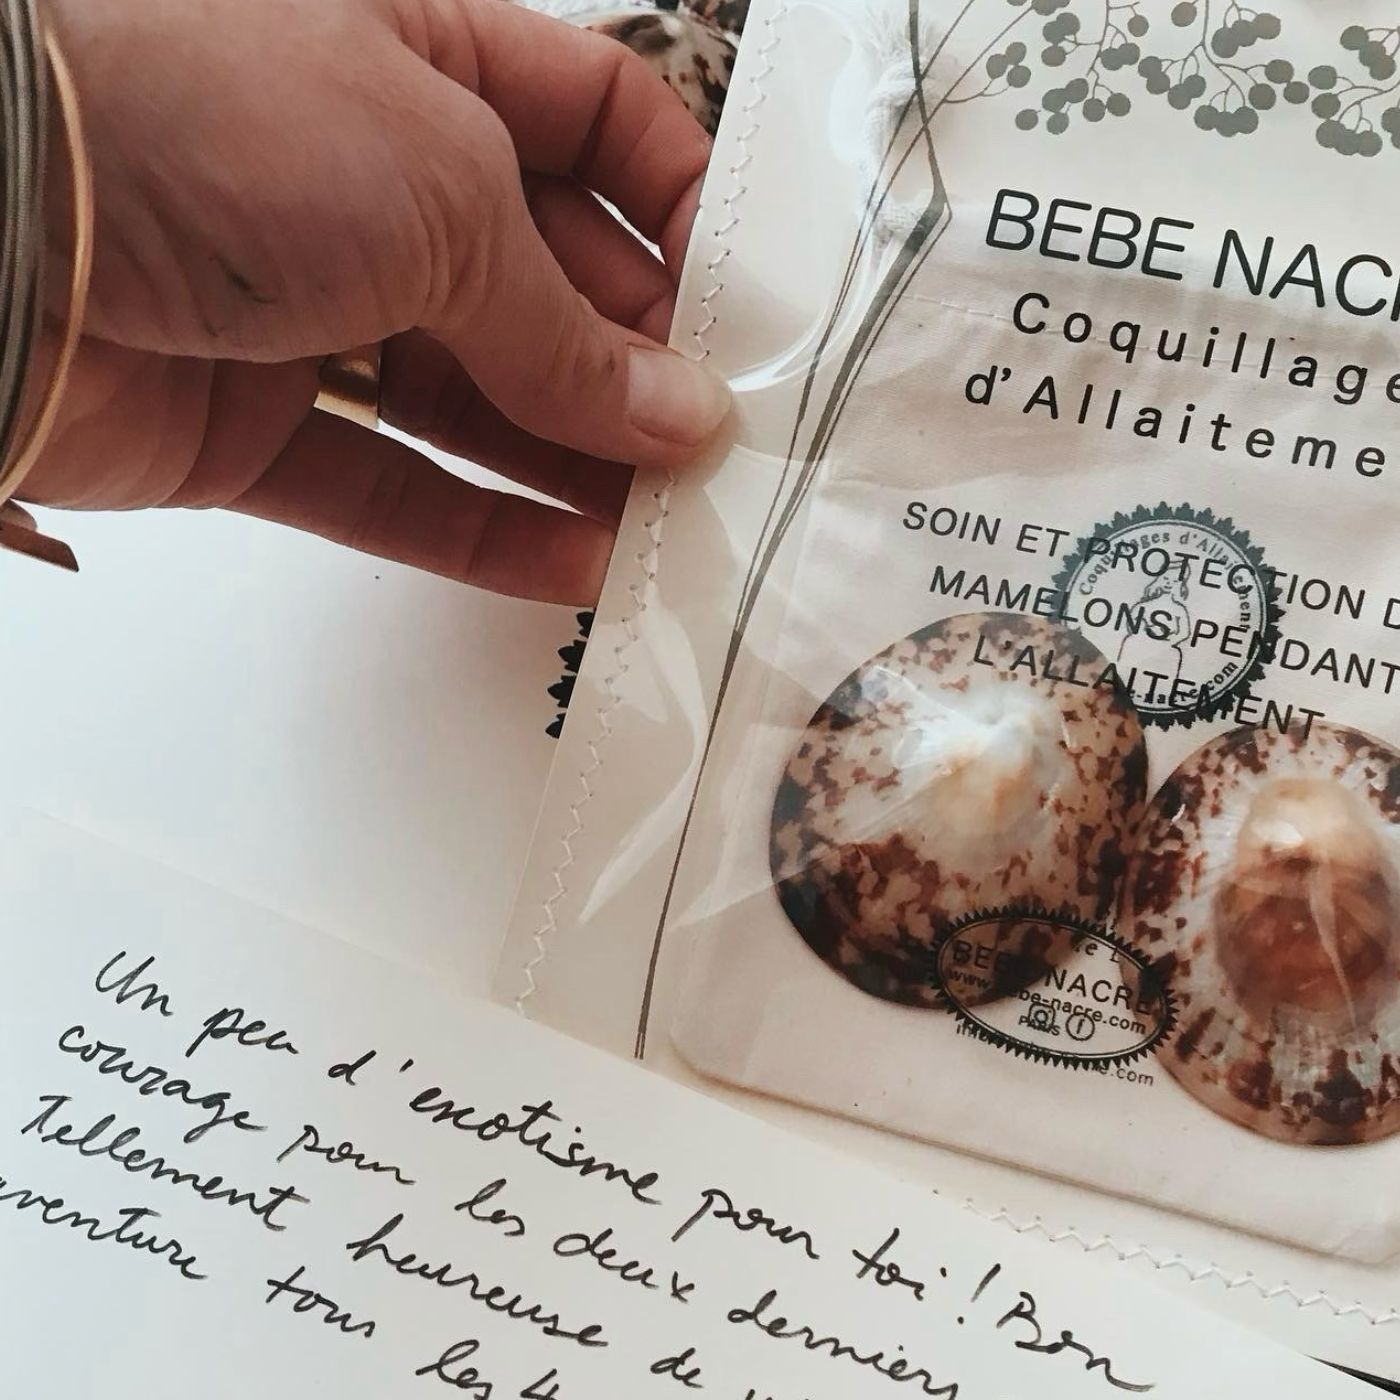 BEBE NAC
Coquillage
d'Allaiteme
SOIN ET PROTECTION D
MAMELONS PENDANT
L'ALLAITEMENT
Coquillages d'Allaitement
BEBE NACRE
www.bebe-nacre.com
PARIS
Un peu d'exotisme pour toi ! Bon
courage pour les deux derniers
Tellement heureuse de
aventure tous les 4